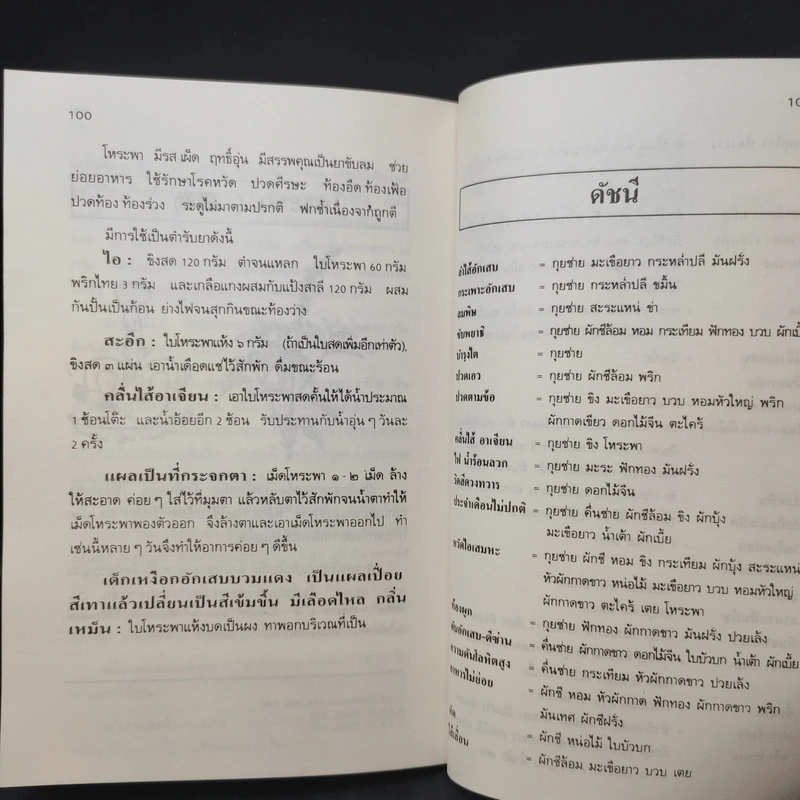 100
โหระพา มีรสเผ็ด ฤทธิ์อุ่น มีสรรพคุณเป็นยาขับลม ช่วย
ย่อยอาหาร ใช้รักษาโรคหวัด ปวดศีรษะ ท้องอืด ท้องเฟ้อ
ปวดท้อง ท้องร่วง ระดูไม่มาตามปรกติ ฟกช้ำเนื่องจากถูกตี
มีการใช้เป็นตำรับยาดังนี้
ไอ : ขิงสด 120 กรัม ตำจนแหลก ใบโหระพา 60 กรัม
พริกไทย 3 กรัม และเกลือแกงผสมกับแป้งสาลี 120 กรัม ผสม
กันปั้นเป็นก้อน ย่างไฟจนสุกกินขณะท้องว่าง
สะอึก : ใบโหระพาแห้ง ๖ กรัม (ถ้าเป็นใบสดเพิ่มอีกเท่าตัว),
ขิงสด ๓ แผ่น เอาน้ำเดือดแช่ไว้สักพัก ดื่มขณะร้อน
คลื่นไส้อาเจียน : เอาใบโหระพาสดคั้นให้ได้น้ำประมาณ
1 ช้อนโต๊ะ และน้ำอ้อยอีก 2 ช้อน รับประทานกับน้ำอุ่น ๆ วันละ
2 ครั้ง
แผลเป็นที่กระจกตา : เม็ดโหระพา ๑ - ๒ เม็ด ล้าง
ให้สะอาด ค่อย ๆ ใส่ไว้ที่มุมตา แล้วหลับตาไว้สักพักจนน้ำตาทำให้
เม็ดโหระพาพองตัวออก จึงล้างตาและเอาเม็ดโหระพาออกไป ทำ
เช่นนี้หลาย ๆ วันจึงทำให้อาการค่อย ๆ ดีขึ้น
เด็กเหงือกอักเสบบวมแดง เป็นแผลเปื่อย
สีเทาแล้วเปลี่ยนเป็นสีเข้มขึ้น มีเลือดไหล กลิ่น
เหม็น : ใบโหระพาแห้งบดเป็นผง ทาพอกบริเวณที่เป็น
ดัชนี
ลำไส้อักเสบ = กุยช่าย มะเขือยาว กระหล่ำปลี มันฝรั่ง
กระเพาะอักเสบ = กุยช่าย กระหล่ำปลี ขมิ้น
ลมพิษ = กุยช่าย สะระแหน่ ข่า
ขับพยาธิ = กุยช่าย ผักชีล้อม หอม กระเทียม ฟักทอง บวบ ผักเบี้ย
บำรุงไต = กุยช่าย
ปวดเอว = กุยช่าย ผักชีล้อม พริก
ปวดตามข้อ = กุยช่าย ขิง มะเขือยาว บวบ หอมหัวใหญ่ พริก
ผักกาดเขียว ดอกไม้จีน ตะไคร้
คลื่นไส้ อาเจียน = กุยช่าย ขิง โหระพา
ไฟ น้ำร้อนลวก = กุยช่าย มะระ ฟักทอง มันฝรั่ง
ริดสีดวงทวาร = กุยช่าย ดอกไม้จีน
ประจำเดือนไม่ปกติ = กุยช่าย คื่นช่าย ผักชีล้อม ขิง ผักบุ้ง
มะเขือยาว น้ำเต้า ผักเบี้ย
หวัดไอเสมหะ = กุยช่าย ผักชี หอม ขิง กระเทียม ผักบุ้ง สะระแหน่
หัวผักกาดขาว หน่อไม้ มะเขือยาว บวบ หอมหัวใหญ่
ผักกาดขาว ตะไคร้ เตย โหระพา
ท้องผูก = กุยช่าย ฟักทอง ผักกาดขาว มันฝรั่ง ปวยเล้ง
ตับอักเสบ-ดีซ่าน = คื่นช่าย ผักกาดขาว ดอกไม้จีน ใบบัวบก น้ำเต้า ผักเบี้ย
ความดันโลหิตสูง = คื่นช่าย กระเทียม หัวผักกาดขาว ปวยเล้ง
อาหารไม่ย่อย = ผักชี หอม หัวผักกาด ฟักทอง ผักกาดขาว พริก
มันเทศ ผักชีฝรั่ง
= ผักชี หน่อไม้ ใบบัวบก
= ผักชีล้อม มะเขือยาว บวบ เตย